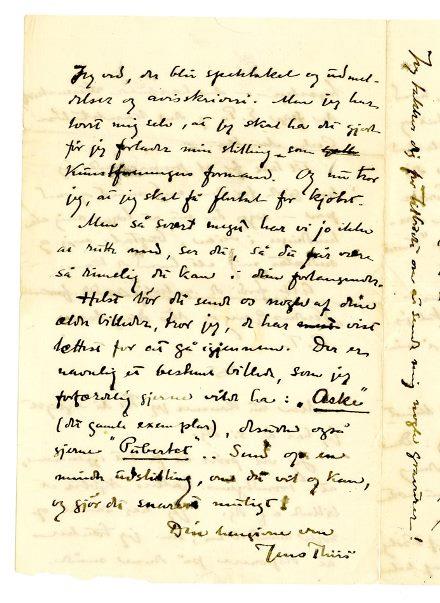 Jeg ved, der blir spektakel og udmel-
delser og avisskriveri. Men jeg har
lovet mig selv, at jeg skal ha det gjort
før jeg forlader min stilling som
Kunstforeningens formand. Og nu tror
jeg, at jeg skal få flertal for kjøbet.
Men så svært meget har vi jo ikke
at rutte med, ser du, så du får være
så rimelig du kan i dine forlangender.
Helst bør du sende os nogle af dine
ældre billeder, tror jeg, de har vist
lettest for at gå igjennem. Der er
navnlig et bestemt billede, som jeg
forfærdelig gjerne vilde ha: "Aske"
(det gamle exemplar), desuden også
gjerne "Pubertet".. Send op en
mindre udstilling, om du vil og kan,
og gjør det snarest muligt!
Din hengivne ven
Jens Thiis
Jeg takker dig for om at sende mig nogle gravurer!